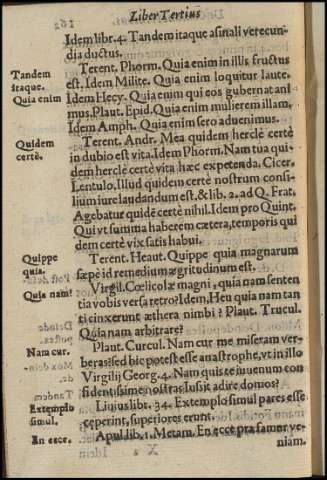 Liber Tertius
Idem libr. 4. Tandem itaque asinali verecun-
dia ductus.
Tandem itaque.
Terent. Phorm. Quia enim in illis fructus
est. Idem Milite. Quia enim loquitur laute.
Quia enim
Idem Hecy. Quia enim qui eos gubernat ani
mus. Plaut. Epid. Quia enim mulierem illam.
Idem Amph. Quia enim sero aduenimus.
Quidem certè.
Terent. Andr. Mea quidem herclè certè
in dubio est vita. Idem Phorm. Nam tua qui-
dem herclè certè vita hæc expetenda. Cicer.
Lentulo, Illud quidem certè nostrum consi-
lium iure laudandum est. & lib. 2. ad Q. Frat.
Agebatur quidē certè nihil. Idem pro Quint.
Qui vt summa haberem cætera, temporis qui
dem certè vix satis habui.
Quippe quia.
Terent. Heaut. Quippe quia magnarum
sæpè id remedium ægritudinum est.
Quia nam?
Virgil. Cœlicolæ magni, quia nam senten
tia vobis versa retro? Idem, Heu quia nam tan
ti cinxerunt æthera nimbi? Plaut. Trucul.
Quia nam arbitrare?
Nam cur.
Plaut. Curcul. Nam cur me miseram ver-
beras? sed hic potest esse anastrophe, vt in illo
Virgilij Georg. 4. Nam quis te iuuenum con
fidentissime nostras iussit adire domos?
Extemplo simul.
Liuius libr. 34. Extemplo simul pares esse
ceperint, superiores erunt.
En ecce.
Apul. lib. 1. Metam. En ecce præfamer ve-
niam.